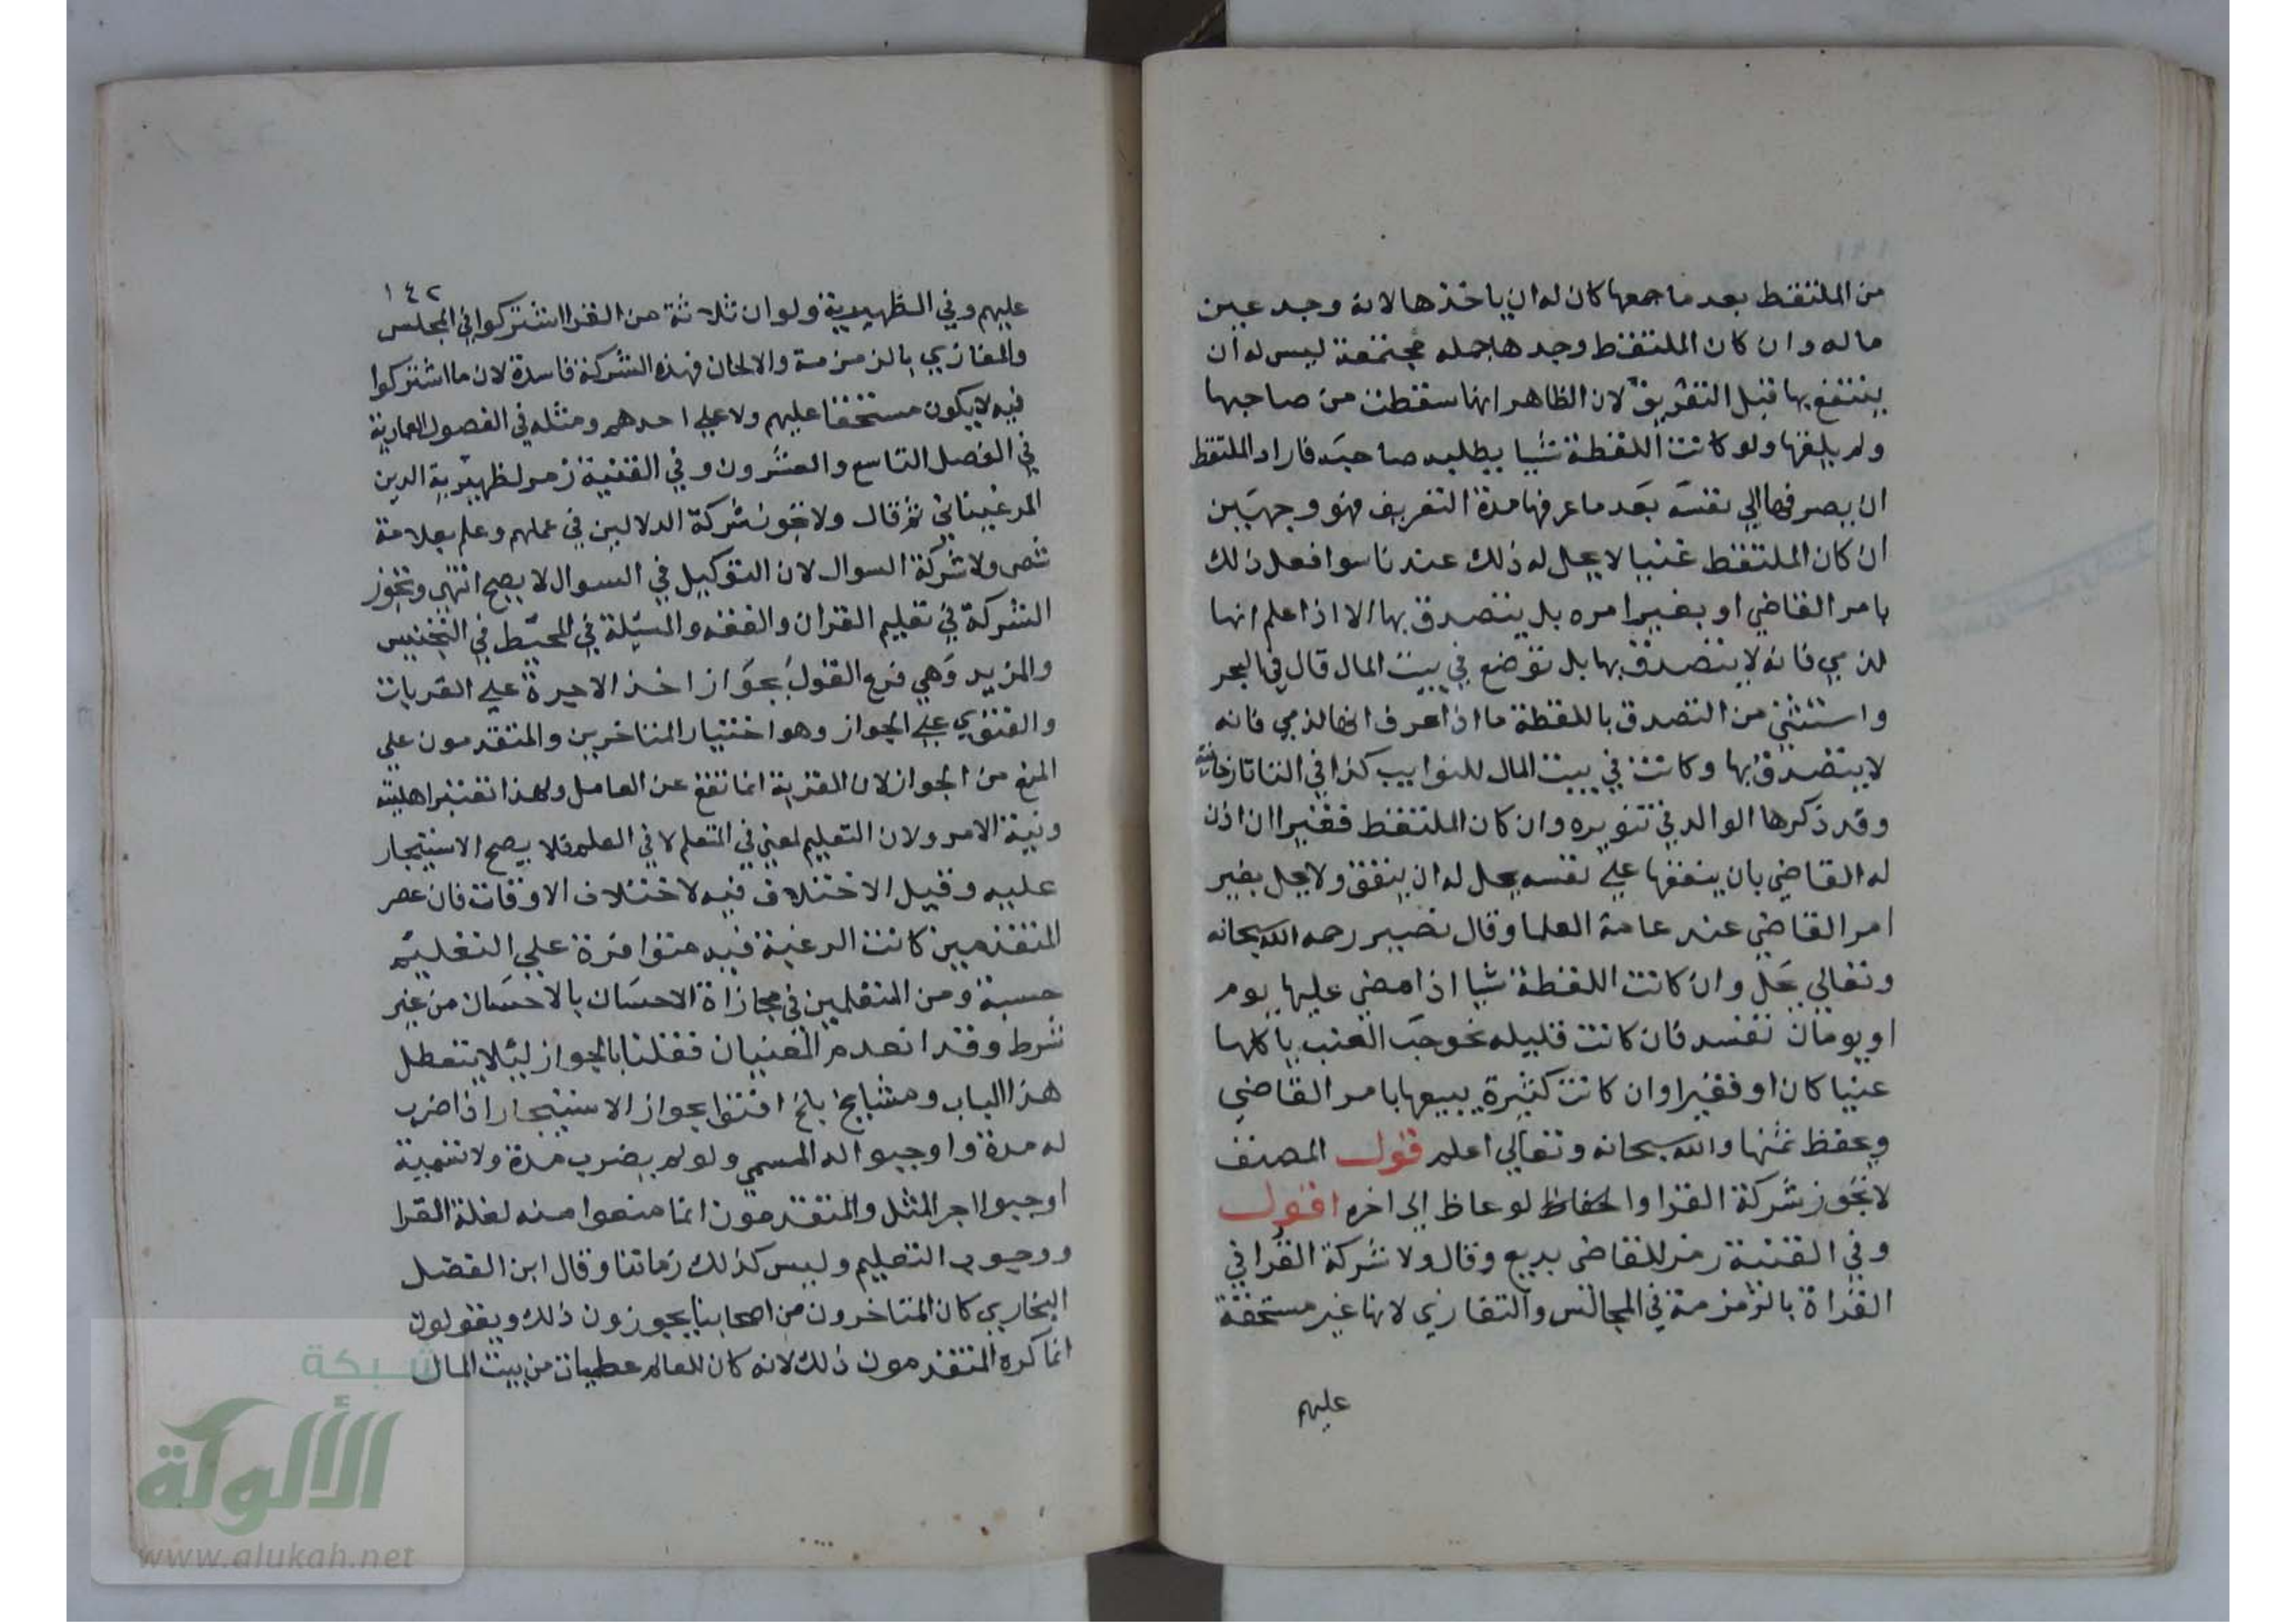 من الملتقط بعد ما جمعها كان له ان ياخذها لانه وجد عين
ماله وان كان الملتقط وجدها جملة مجتمعة ليس له ان
ينتفع بها قبل التعريف لان الظاهر انها سقطت من صاحبها
ولم يلقها ولو كانت اللقطة شيا يطلبه صاحبه فاراد الملتقط
ان يصرفها الي نفسه بعد ما عرفها مدة التعريف فهو وجهين
ان كان الملتقط غنيا لا يحل له ذلك عندنا سوا فعل ذلك
بامر القاضي او بغير امره بل يتصدق بها الا اذا علم انها
لذمي فانه لا يتصدق بها بل توضع في بيت المال قال في البحر
واستثني من التصدق باللقطة ما اذا عرف انها لذمي فانه
لا يتصدق بها وكانت في بيت المال للنوايب كذا في التاتارخانية
وقد ذكرها الوالد في تنويره وان كان الملتقط فقيرا ان اذن
له القاضي بان ينفقها علي نفسه يحل له ان ينفق ولا يحل بغير
امر القاضي عند عامة العلما وقال نصير رحمه الله سبحانه
وتعالي يحل وان كانت اللقطة شيا اذا مضي عليها يوم
او يومان تفسد فان كانت قليله نحو حب العنب ياكلها
غنيا كان او فقيرا وان كانت كثيرة يبيعها بامر القاضي
ويحفظ ثمنها والله سبحانه وتعالي اعلم قول المصنف
لا تجوز شركة القرا والحفاظ لوعاظ الي اخره اقول
وفي القنية رمز للقاضي بديع وقال ولا شركة القرا في
القراة بالزمزمة في المجالس والتغازي لانها غير مستحقة
عليهم
١٤٢
عليهم وفي الظهيرية ولو ان ثلاثة من القرا اشتركوا في المجلس
والمغازي بالزمزمة والالحان فهذه الشركة فاسدة لان ما اشتركوا
فيه لا يكون مستحقا عليهم ولا علي احدهم ومثله في الفصول العمادية
في الفصل التاسع والعشرون وفي القنية رمز لظهيرية الدين
المرغيناني ثم قال ولا تجوز شركة الدلالين في عملهم وعلم بعلامة
شص ولا شركة السوال لان التوكيل في السوال لا يصح انتهي وتجوز
الشركة في تعليم القران والفقه والمسيلة في المحيط في التجنيس
والمزيد وهي فرع القول بجواز اخذ الاجيرة علي القربات
والفتوي علي الجواز وهو اختيار المتاخرين والمتقدمون علي
المنع من الجواز لان القربة انما تقع عن العامل ولهذا تعتبر اهليته
ونية الامر ولان التعليم لمعني في المتعلم لا في العلم فلا يصح الاستيجار
عليه وقيل الاختلاف فيه لاختلاف الاوقات فان عصر
المتقدمين كانت الرغبة فيه متوافرة علي التعليم
حسبة ومن المتعلمين في مجازاة الاحسان بالاحسان من غير
شرط وقد انعدم المعنيان فقلنا بالجواز ليلا يتعطل
هذا الباب ومشايخ بلخ افتوا بجواز الاستيجار اذا ضرب
له مدة واوجبوا له المسمي ولو لم يضرب مدة ولا تسمية
اوجبوا اجر المثل والمتقدمون انما منعوا منه لغلة القرا
ووجوب التعليم وليس كذلك زماننا وقال ابن الفضل
البخاري كان المتاخرون من اصحابنا يجوزون ذلك ويقولون
انما كره المتقدمون ذلك لانه كان للعالم عطيات من بيت المال
شبكة
الألوكة
www.alukah.net